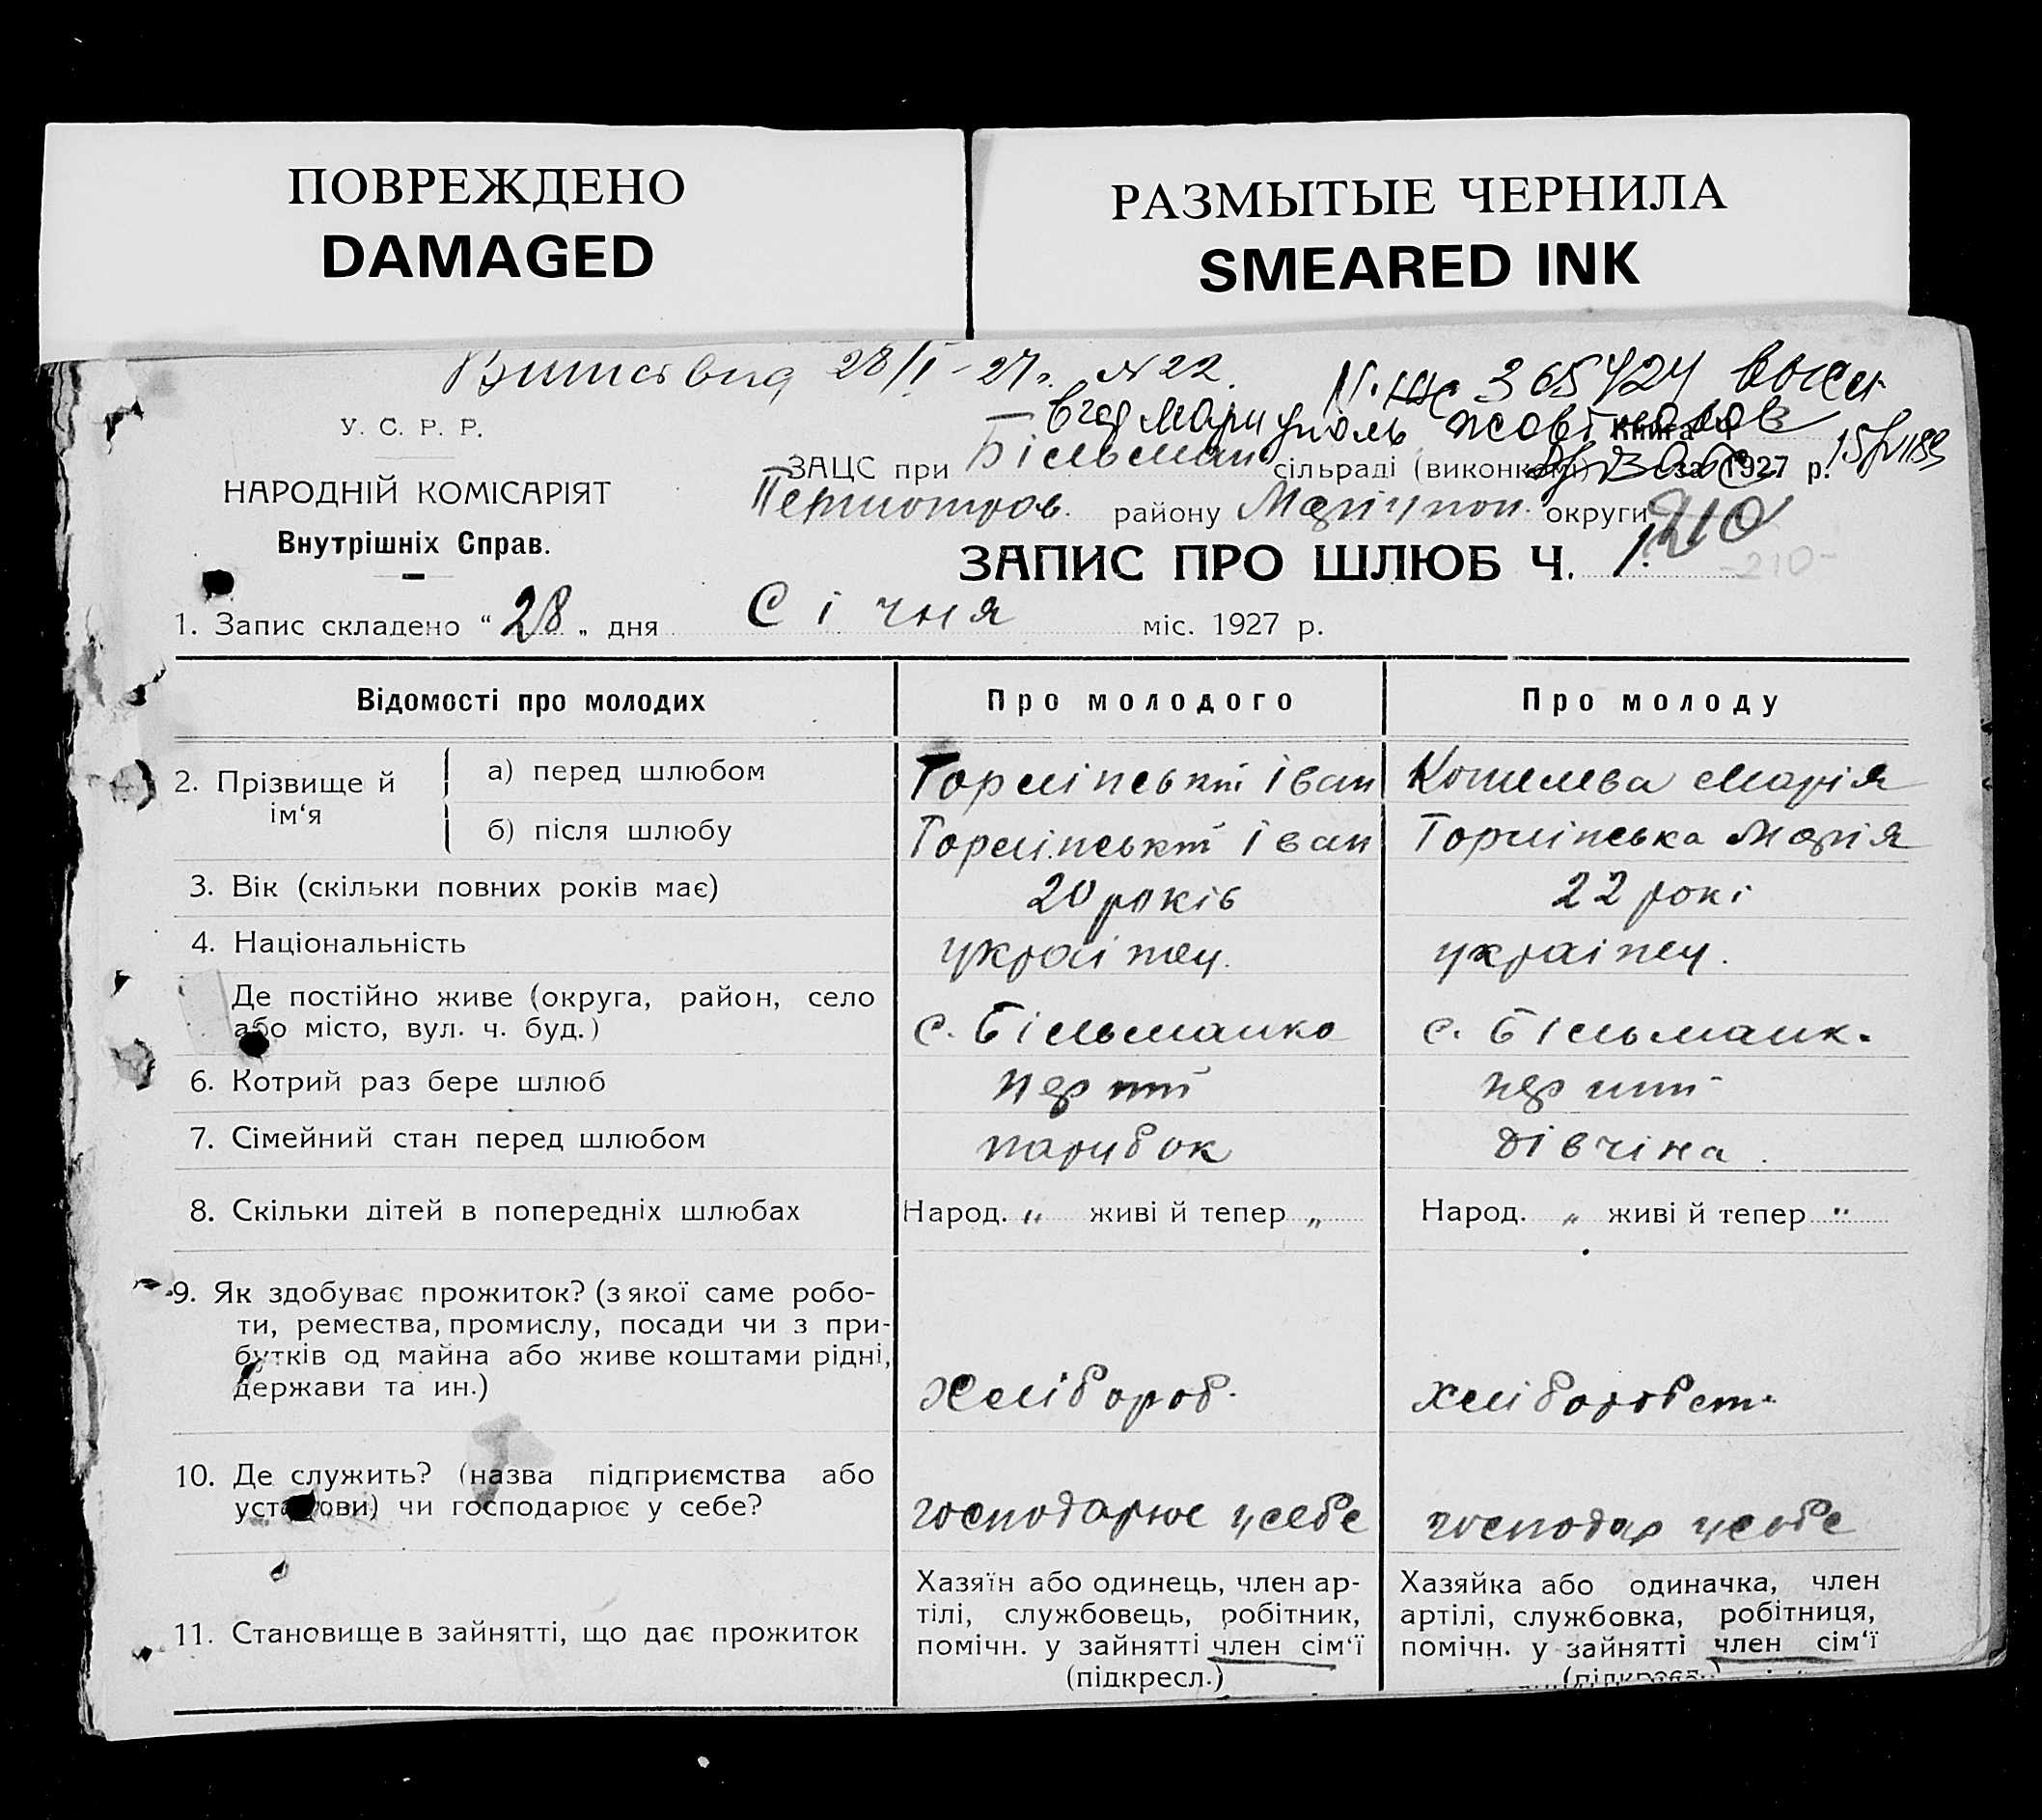 ПОВРЕЖДЕНО
DAMAGED
РАЗМЫТЫЕ ЧЕРНИЛА
SMEARED INK
28/I-27р. №22.
365424
Мариуполь
У. С. Р. Р.
Книга Ч
НАРОДНІЙ КОМІСАРІЯТ
Внутрішніх Справ.
ЗАЦС при Більман сільраді (виконкомі) за 1927 р.
Першотров. району Маріупол. округи
210
ЗАПИС ПРО ШЛЮБ Ч. 1.
-210-
1. Запис складено “ 28 „ дня Січня міс. 1927 р.
Відомості про молодих Про молодого Про молоду
2. Прізвище й ім‘я
а) перед шлюбом Іван Марія
б) після шлюбу Іван Марія
3. Вік (скільки повних років має) 20 років 22 рокі
4. Національність українец. українец.
Де постійно живе (округа, район, село
або місто, вул. ч. буд.) с. Більманка с. Більманк.
6. Котрий раз бере шлюб перший перший
7. Сімейний стан перед шлюбом парубок дівчіна.
8. Скільки дітей в попередніх шлюбах Народ. „ живі й тепер „ Народ. „ живі й тепер „
9. Як здобуває прожиток? (з якої саме робо-
ти, ремества, промислу, посади чи з при-
бутків од майна або живе коштами рідні,
держави та ин.) хлібороб. хліборобст.
10. Де служить? (назва підприємства або
установи) чи господарює у себе? господарює у себе господар у себе
11. Становище в зайнятті, що дає прожиток
Хазяїн або одинець, член ар-
тілі, службовець, робітник,
помічн. у зайнятті член сім‘ї
(підкресл.)
Хазяйка або одиначка, член
артілі, службовка, робітниця,
помічн. у зайнятті член сім‘ї
(підкресл.)